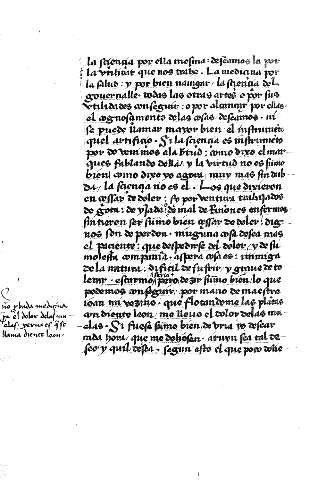 la sçiençia por ella mesma: deseamos la por
la vtilidat que nos trahe. La medicina por
la salud: y por bien nauigar. la sçiençia del
gouernalle. todas las otras artes o por sus
vtilidades conseguir: o por alcançar por ellas
el cognosçimento de las cosas deseamos. ni
se puede llamar mayor bien el instrumento
quel artifiçio. Si la sçiençia es instrumento
por do venimos ala virtud: como dixo el mar
ques fablando della: y la virtud no es sumo
bien como dixo yo agora: muy mas sin dub
da. la sçiençia no es el. Los que dixieron
en çessar de dolor: si por ventura trabaiados
de gota: de yiada: de mal de riñones enfermos
sintieron ser sumo bien çessar de dolor: dig
nos son de perdon. ninguna cosa desea mas
el paciente: que despedirse del dolor. y de su
molesta compania. aspera cosa es: enemiga
de la natura. difiçil de sufrir. y graue de to
lerar. pero dezir sumo bien lo que
podemos conseguir. por mano de maestro
ioan mi vezino. que flotandome las platas
con diente leon. me lleuo el dolor delas mu
elas. Si fuesse sumo bien deuria yo desear
cada hora. que me doliessen. avnque sea tal de
seo y quil desea. segun esto el que poco deue
no: yerua medicina
pa el dolor delas mu
elas. yerua es q̃ se
llama diente leon.